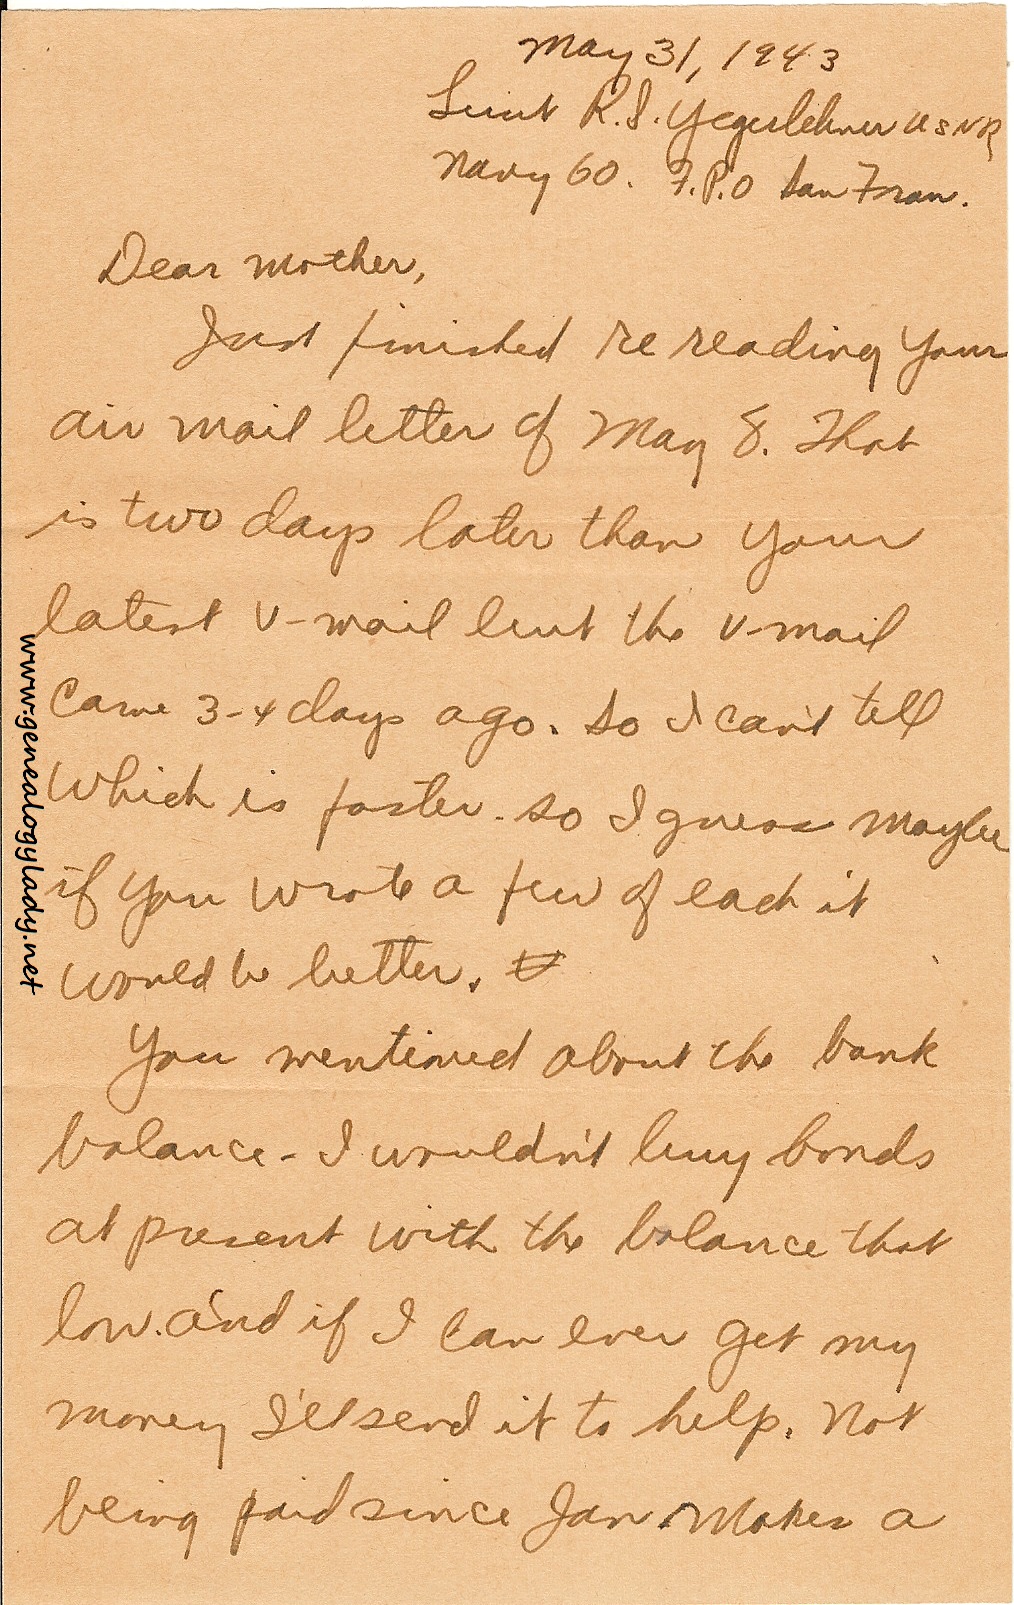 May 31, 1943
Lieut R.S. Yegerlehner USNR
Navy 60. F.P.O San Fran.
Dear Mother,
Just finished re reading your
air mail letter of May 8. That
is two days later than your
latest V-mail but the V-mail
came 3-4 days ago. So I can't tell
which is faster. So I guess maybe
if you wrote a few of each it
would be better.
You mentioned about the bank
balance - I wouldn't buy bonds
at present with the balance that
low. And if I can ever get my
money I'll send it to help. Not
being paid since Jan. makes a
www.genealogylady.net